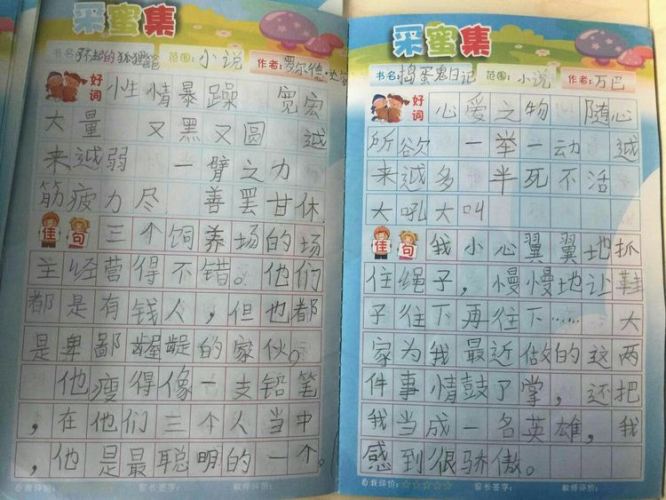 采蜜集
书名:了不起的狐狸爸 范围:小说 作者:罗尔德·达尔
好词 性情暴躁 宽宏
大量 又黑又圆 越
来越弱 一臂之力
筋疲力尽 善罢甘休
佳句 三个饲养场的场
主经营得不错。他们
都是有钱人,但也都
是卑鄙龌龊的家伙。
他瘦得像一支铅笔
,在他们三个人当中
,他是最聪明的一个。
自我评价: 家长签字: 教师评价:
采蜜集
书名:捣蛋鬼日记 范围:小说 作者:万巴
好词 心爱之物 随心
所欲 一举一动 越
来越多 半死不活
大吼大叫
佳句 我小心翼翼地抓
住绳子,慢慢地让鞋
子往下再往下…… 大
家为我最近做的这两
件事情鼓了掌,还把
我当成一名英雄,我
感到很骄傲。
自我评价:☆☆☆☆☆ 家长签字: 教师评价: